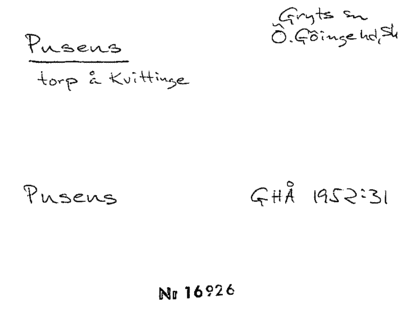 Pusens
torp å Kvittinge
Gryts sn
Ö. Göinge hd, Sk
Pusens
GHÅ 1952:31
Nr 16926